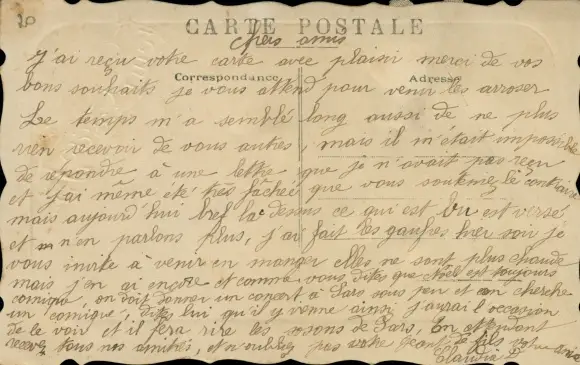 20
CARTE POSTALE
Chers amis
J'ai reçu votre carte avec plaisir merci de vos
Correspondance Adresse
bons souhaits je vous attend pour venir les arroser
Le temps m'a semblé long aussi de ne plus
rien recevoir de vous autres, mais il m'était impossible
de répondre à une lettre que je n'avait pas reçu
et j'ai même été très fachée que vous souteniez le contraire
mais aujourd'hui bref la dessus ce qui est bu est versé
et n'en parlons plus, j'ai fait des gaufres hier soir je
vous invite à venir en manger elles ne sont plus chaude
mais j'en ai encore et comme vous dites que est toujours
comique, on doit donner un concert à Sars sous peu et on cherche
un "comique", dites lui qu'il y vienne ainsi j'aurai l'occasion
de le voir et il fera rire les de Sars, En attendant
recevez tous nos amitiés, et n'oubliez pas votre de fils votre amie
Claudia D